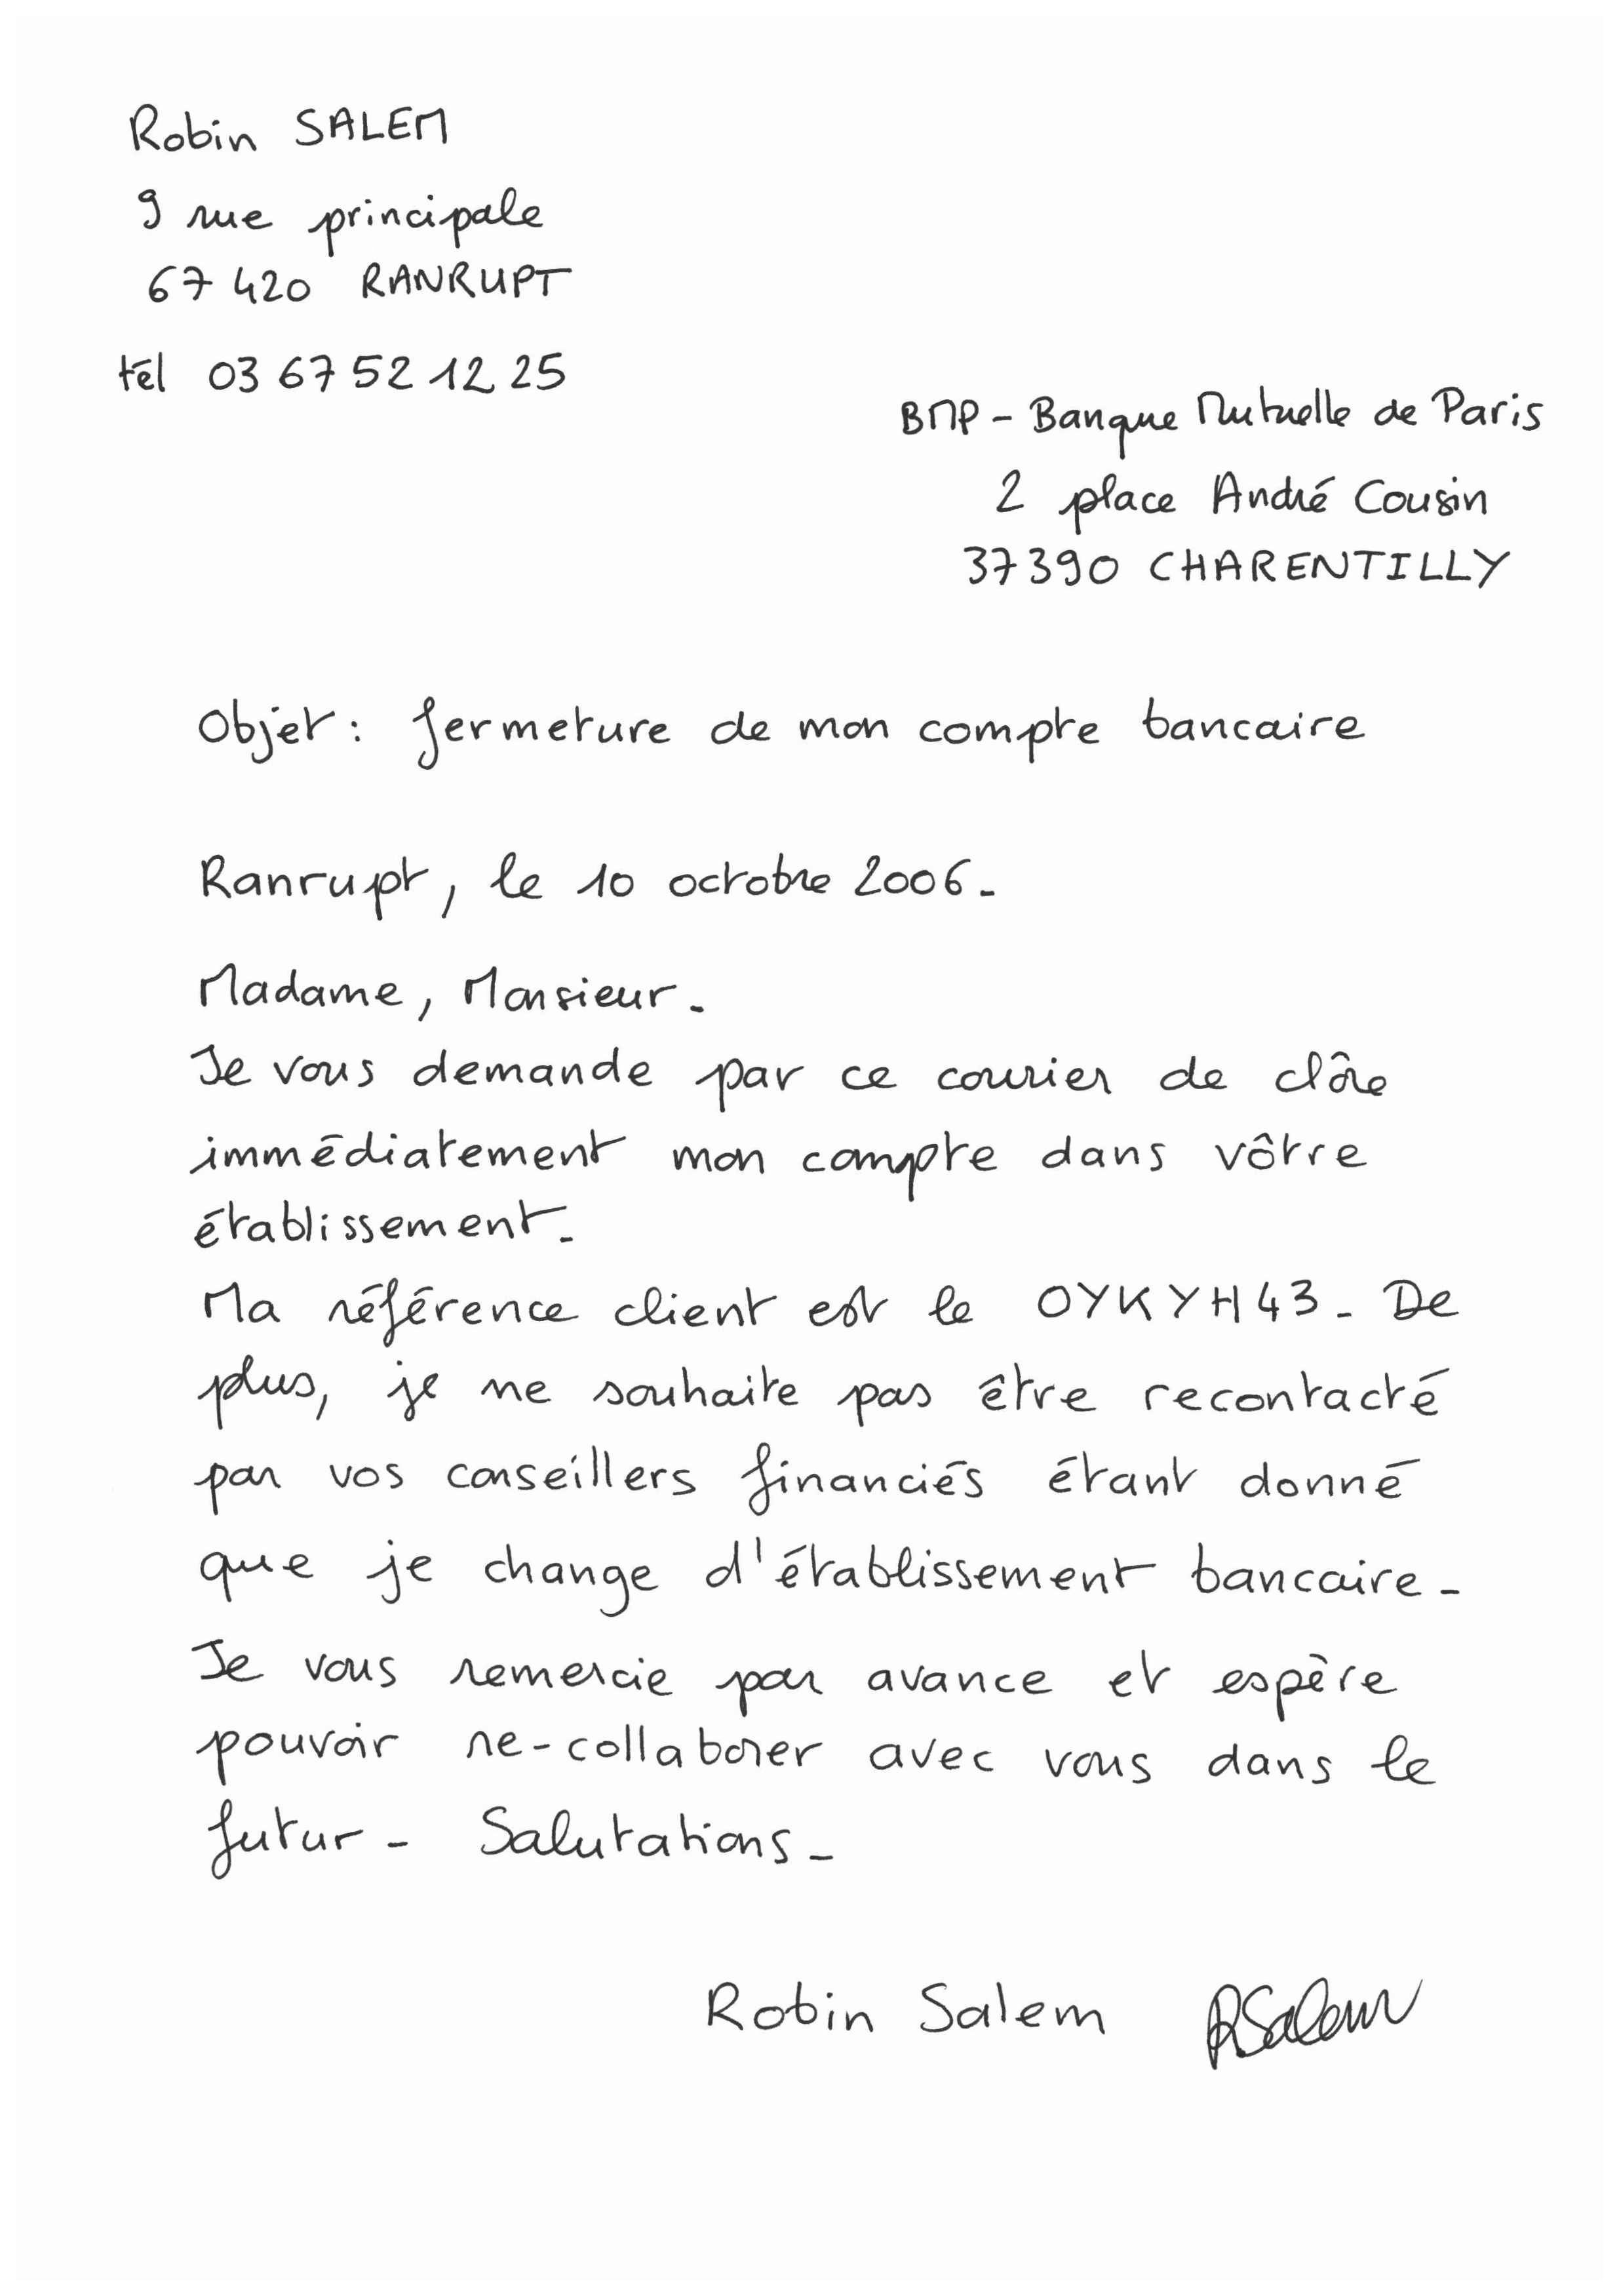 Robin SALEM
9 rue principale
67420 RANRUPT
tél 03 67 52 12 25
BMP - Banque Mutuelle de Paris
2 place André Cousin
37390 CHARENTILLY
Objet : fermeture de mon compte bancaire
Ranrupt, le 10 octobre 2006.
Madame, Monsieur.
Je vous demande par ce courrier de clôre
immédiatement mon compte dans vôtre
établissement.
Ma référence client est le OYKYH43. De
plus, je ne souhaite pas être recontacté
par vos conseillers financiés étant donné
que je change d'établissement bancaire.
Je vous remercie par avance et espère
pouvoir re-collaborer avec vous dans le
futur. Salutations.
Robin Salem RSalem